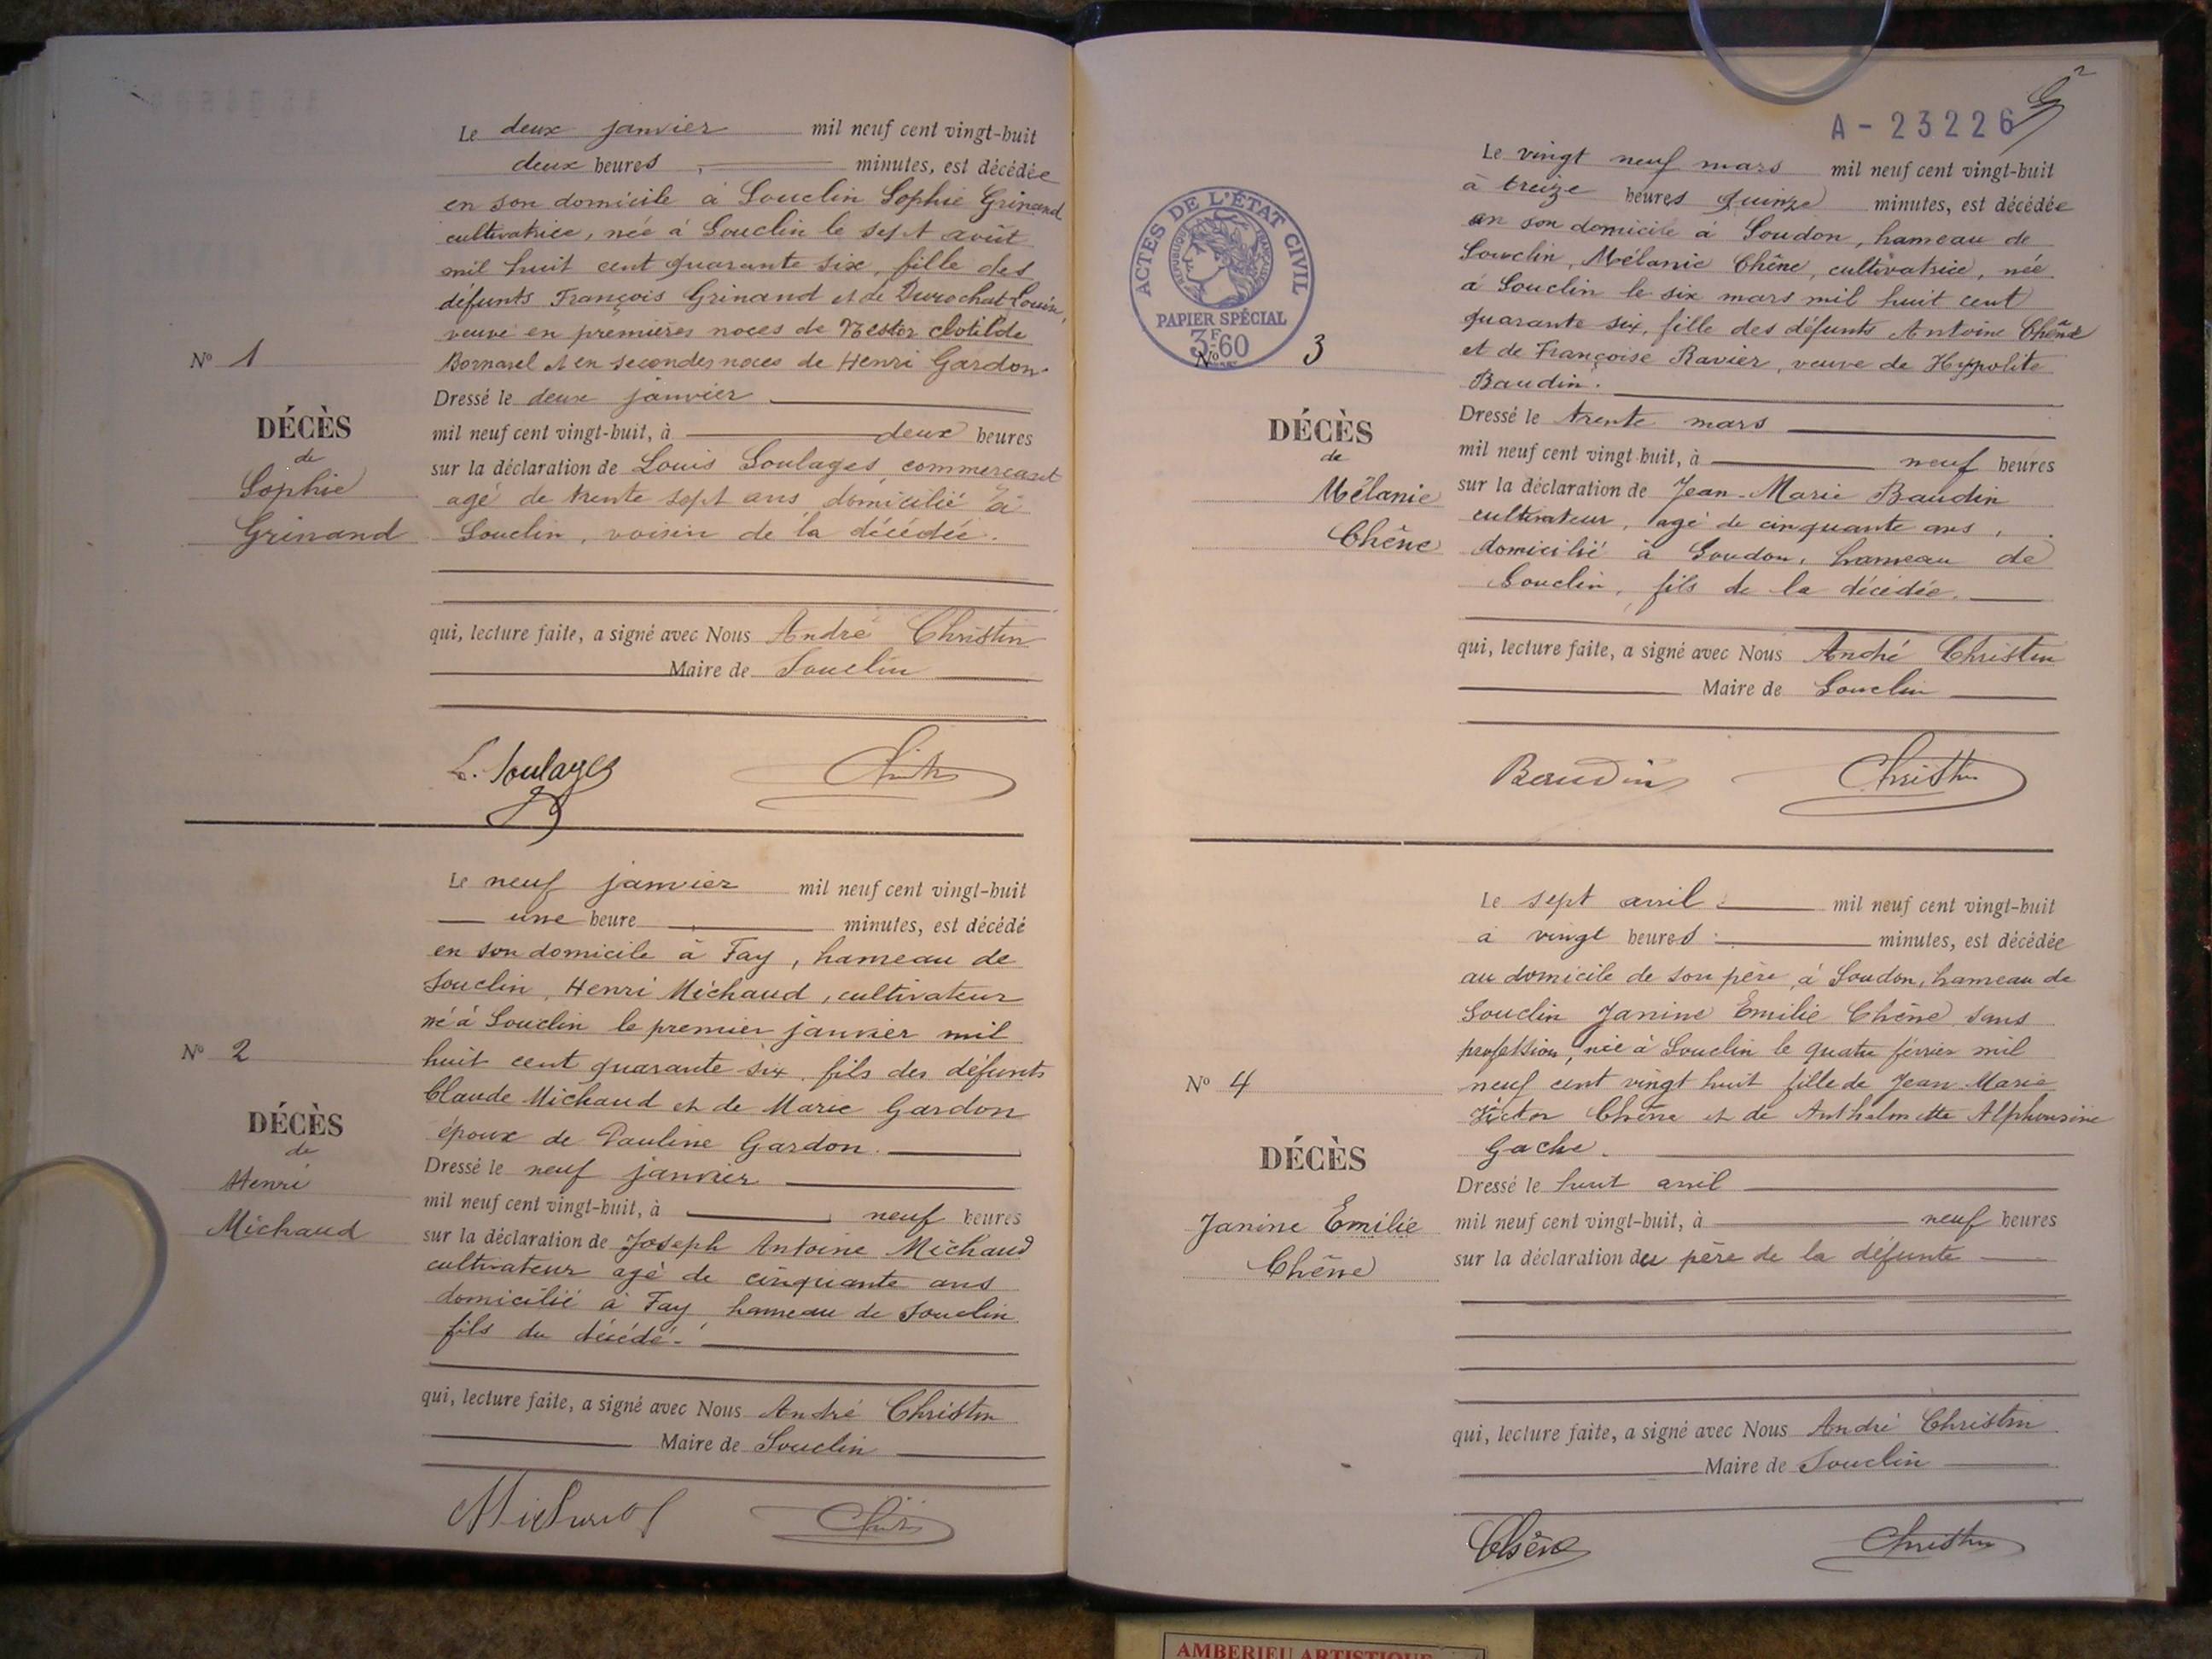 Le deux janvier mil neuf cent vingt-huit
deux heures minutes, est décédée
en son domicile à Souclin Sophie Grinand
cultivatrice, née à Souclin le sept août
mil huit cent quarante six, fille des
défunts François Grinand et de Durochat Louise,
veuve en premières noces de Nestor Clotilde
Bornarel et en secondes noces de Henri Gardon.
Nº 1
DÉCÈS
de
Sophie
Grinand
Dressé le deux janvier
mil neuf cent vingt-huit, à deux heures
sur la déclaration de Louis Soulages, commerçant
agé de trente sept ans domicilié à
Souclin, voisin de la décédée.
qui, lecture faite, a signé avec Nous André Christin
Maire de Souclin
L. Soulages
Le neuf janvier mil neuf cent vingt-huit
une heure minutes, est décédé
en son domicile à Fay, hameau de
Souclin, Henri Michaud, cultivateur
né à Souclin le premier janvier mil
huit cent quarante six, fils des défunts
Claude Michaud et de Marie Gardon
époux de Pauline Gardon.
Nº 2
DÉCÈS
de
Henri
Michaud
Dressé le neuf janvier
mil neuf cent vingt-huit, à neuf heures
sur la déclaration de Joseph Antoine Michaud
cultivateur agé de cinquante ans
domicilié à Fay hameau de Souclin
fils du décédé.
qui, lecture faite, a signé avec Nous André Christin
Maire de Souclin
Michaud
2
A-23226
ACTES DE L'ÉTAT CIVIL
RÉPUBLIQUE FRANÇAISE
PAPIER SPÉCIAL
3F60
Le vingt neuf mars mil neuf cent vingt-huit
à treize heures quinze minutes, est décédée
en son domicile à Soudon, hameau de
Souclin, Mélanie Chêne, cultivatrice, née
à Souclin le six mars mil huit cent
quarante six, fille des défunts Antoine Chêne
et de Françoise Ravier, veuve de Hyppolite
Baudin.
Nº 3
DÉCÈS
de
Mélanie
Chêne
Dressé le trente mars
mil neuf cent vingt-huit, à neuf heures
sur la déclaration de Jean-Marie Baudin
cultivateur, agé de cinquante ans,
domicilié à Soudon, hameau de
Souclin, fils de la décédée.
qui, lecture faite, a signé avec Nous André Christin
Maire de Souclin
Baudin Christin
Le sept avril mil neuf cent vingt-huit
à vingt heures minutes, est décédée
au domicile de son père à Soudon, hameau de
Souclin Janine Emilie Chêne sans
profession, née à Souclin le quatre février mil
neuf cent vingt huit fille de Jean Marie
Victor Chêne et de Anthelmette Alphonsine
Gache.
Nº 4
DÉCÈS
Janine Emilie
Chêne
Dressé le huit avril
mil neuf cent vingt-huit, à neuf heures
sur la déclaration du père de la défunte
qui, lecture faite, a signé avec Nous André Christin
Maire de Souclin
Chêne Christin
AMBERIEU ARTISTIQUE